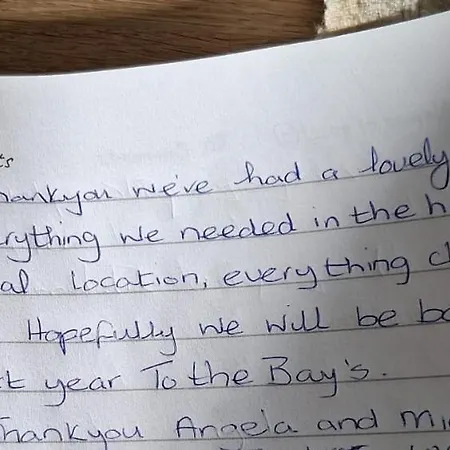 ts
hankyou we've had a lovely
rything we needed in the h
al location, everything cl
Hopefully we will be ba
t year To the Bay's.
hankyou Angela and Mi